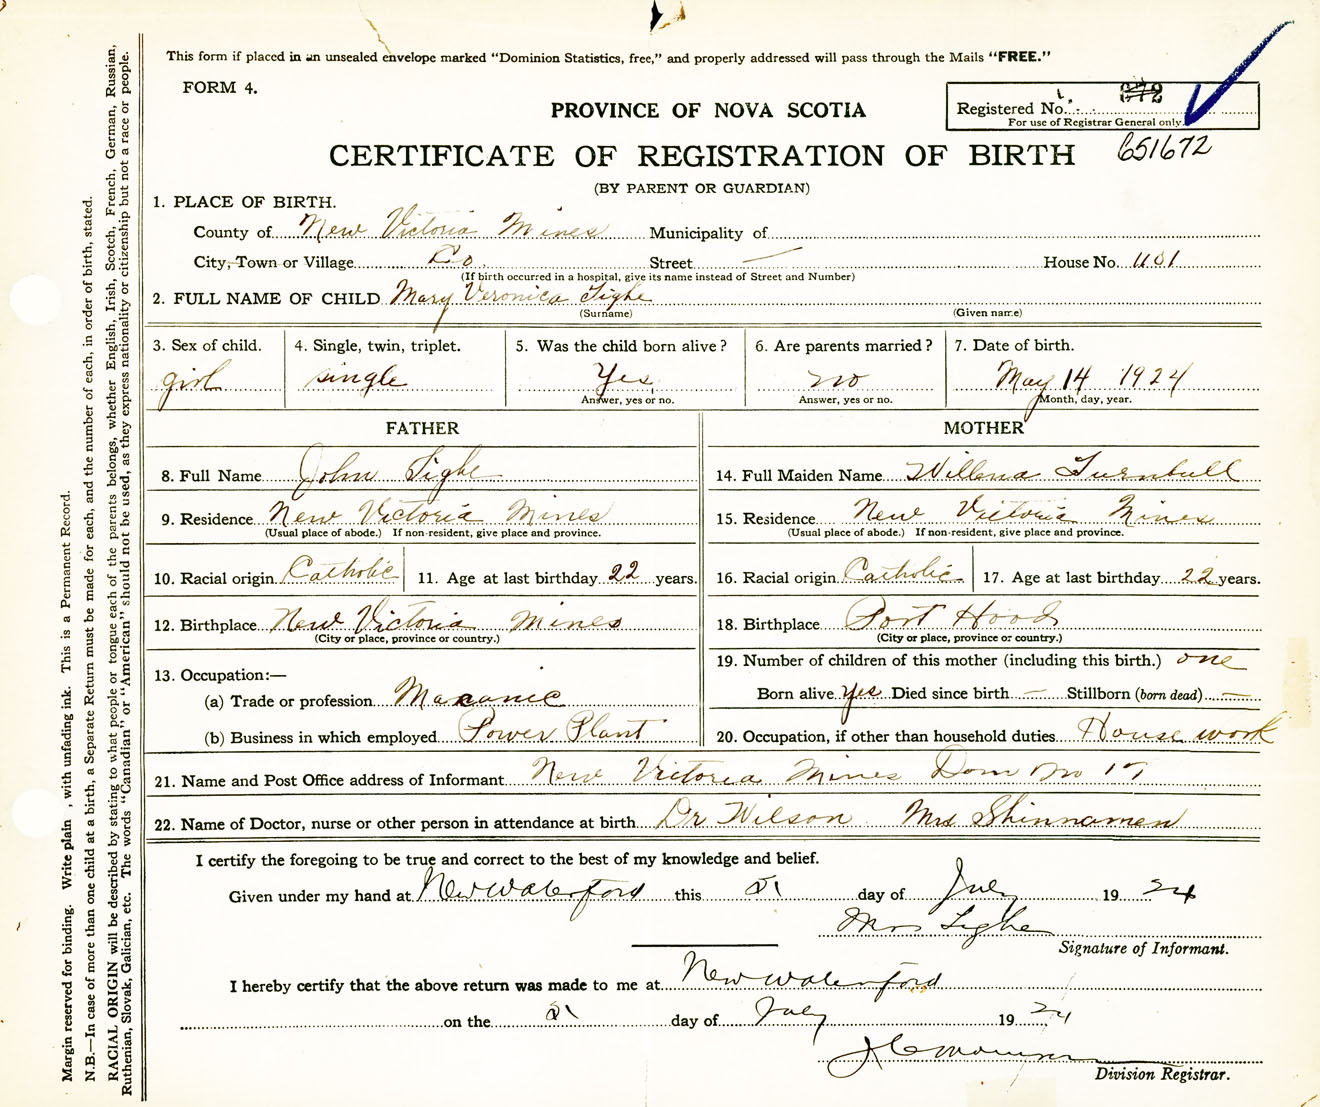 This form if placed in an unsealed envelope marked "Dominion Statistics, free," and properly addressed will pass through the Mails "FREE."
FORM 4.
PROVINCE OF NOVA SCOTIA
Registered No. 672
For use of Registrar General only.
651672
CERTIFICATE OF REGISTRATION OF BIRTH
(BY PARENT OR GUARDIAN)
1. PLACE OF BIRTH.
County of New Victoria Mines Municipality of
City, Town or Village Co. Street — House No. 1101
(If birth occurred in a hospital, give its name instead of Street and Number)
2. FULL NAME OF CHILD Mary Veronica Tighe
(Surname) (Given name)
3. Sex of child. 4. Single, twin, triplet. 5. Was the child born alive? 6. Are parents married? 7. Date of birth.
girl single Yes no May 14 1924
Answer, yes or no. Answer, yes or no. Month, day, year.
FATHER MOTHER
8. Full Name John Tighe 14. Full Maiden Name Willena Turnbull
9. Residence New Victoria Mines 15. Residence New Victoria Mines
(Usual place of abode.) If non-resident, give place and province. (Usual place of abode.) If non-resident, give place and province.
10. Racial origin Catholic 11. Age at last birthday 22 years. 16. Racial origin Catholic 17. Age at last birthday 22 years.
12. Birthplace New Victoria Mines 18. Birthplace Port Hood
(City or place, province or country.) (City or place, province or country.)
13. Occupation:— 19. Number of children of this mother (including this birth.) one
(a) Trade or profession Macanic Born alive yes Died since birth — Stillborn (born dead) —
(b) Business in which employed Power Plant 20. Occupation, if other than household duties House work
21. Name and Post Office address of Informant New Victoria Mines Dom No 17
22. Name of Doctor, nurse or other person in attendance at birth Dr Wilson Mrs Shinnamen
I certify the foregoing to be true and correct to the best of my knowledge and belief.
Given under my hand at New Waterford this day of July 1924
Mrs Tighe
Signature of Informant.
I hereby certify that the above return was made to me at New Waterford
on the day of July 1924
Division Registrar.
Margin reserved for binding. Write plain, with unfading ink. This is a Permanent Record.
N.B.—In case of more than one child at a birth, a Separate Return must be made for each, and the number of each, in order of birth, stated.
RACIAL ORIGIN will be described by stating to what people or tongue each of the parents belongs, whether English, Irish, Scotch, French, German, Russian,
Ruthenian, Slovak, Galician, etc. The words "Canadian" or "American" should not be used, as they express nationality or citizenship but not a race or people.